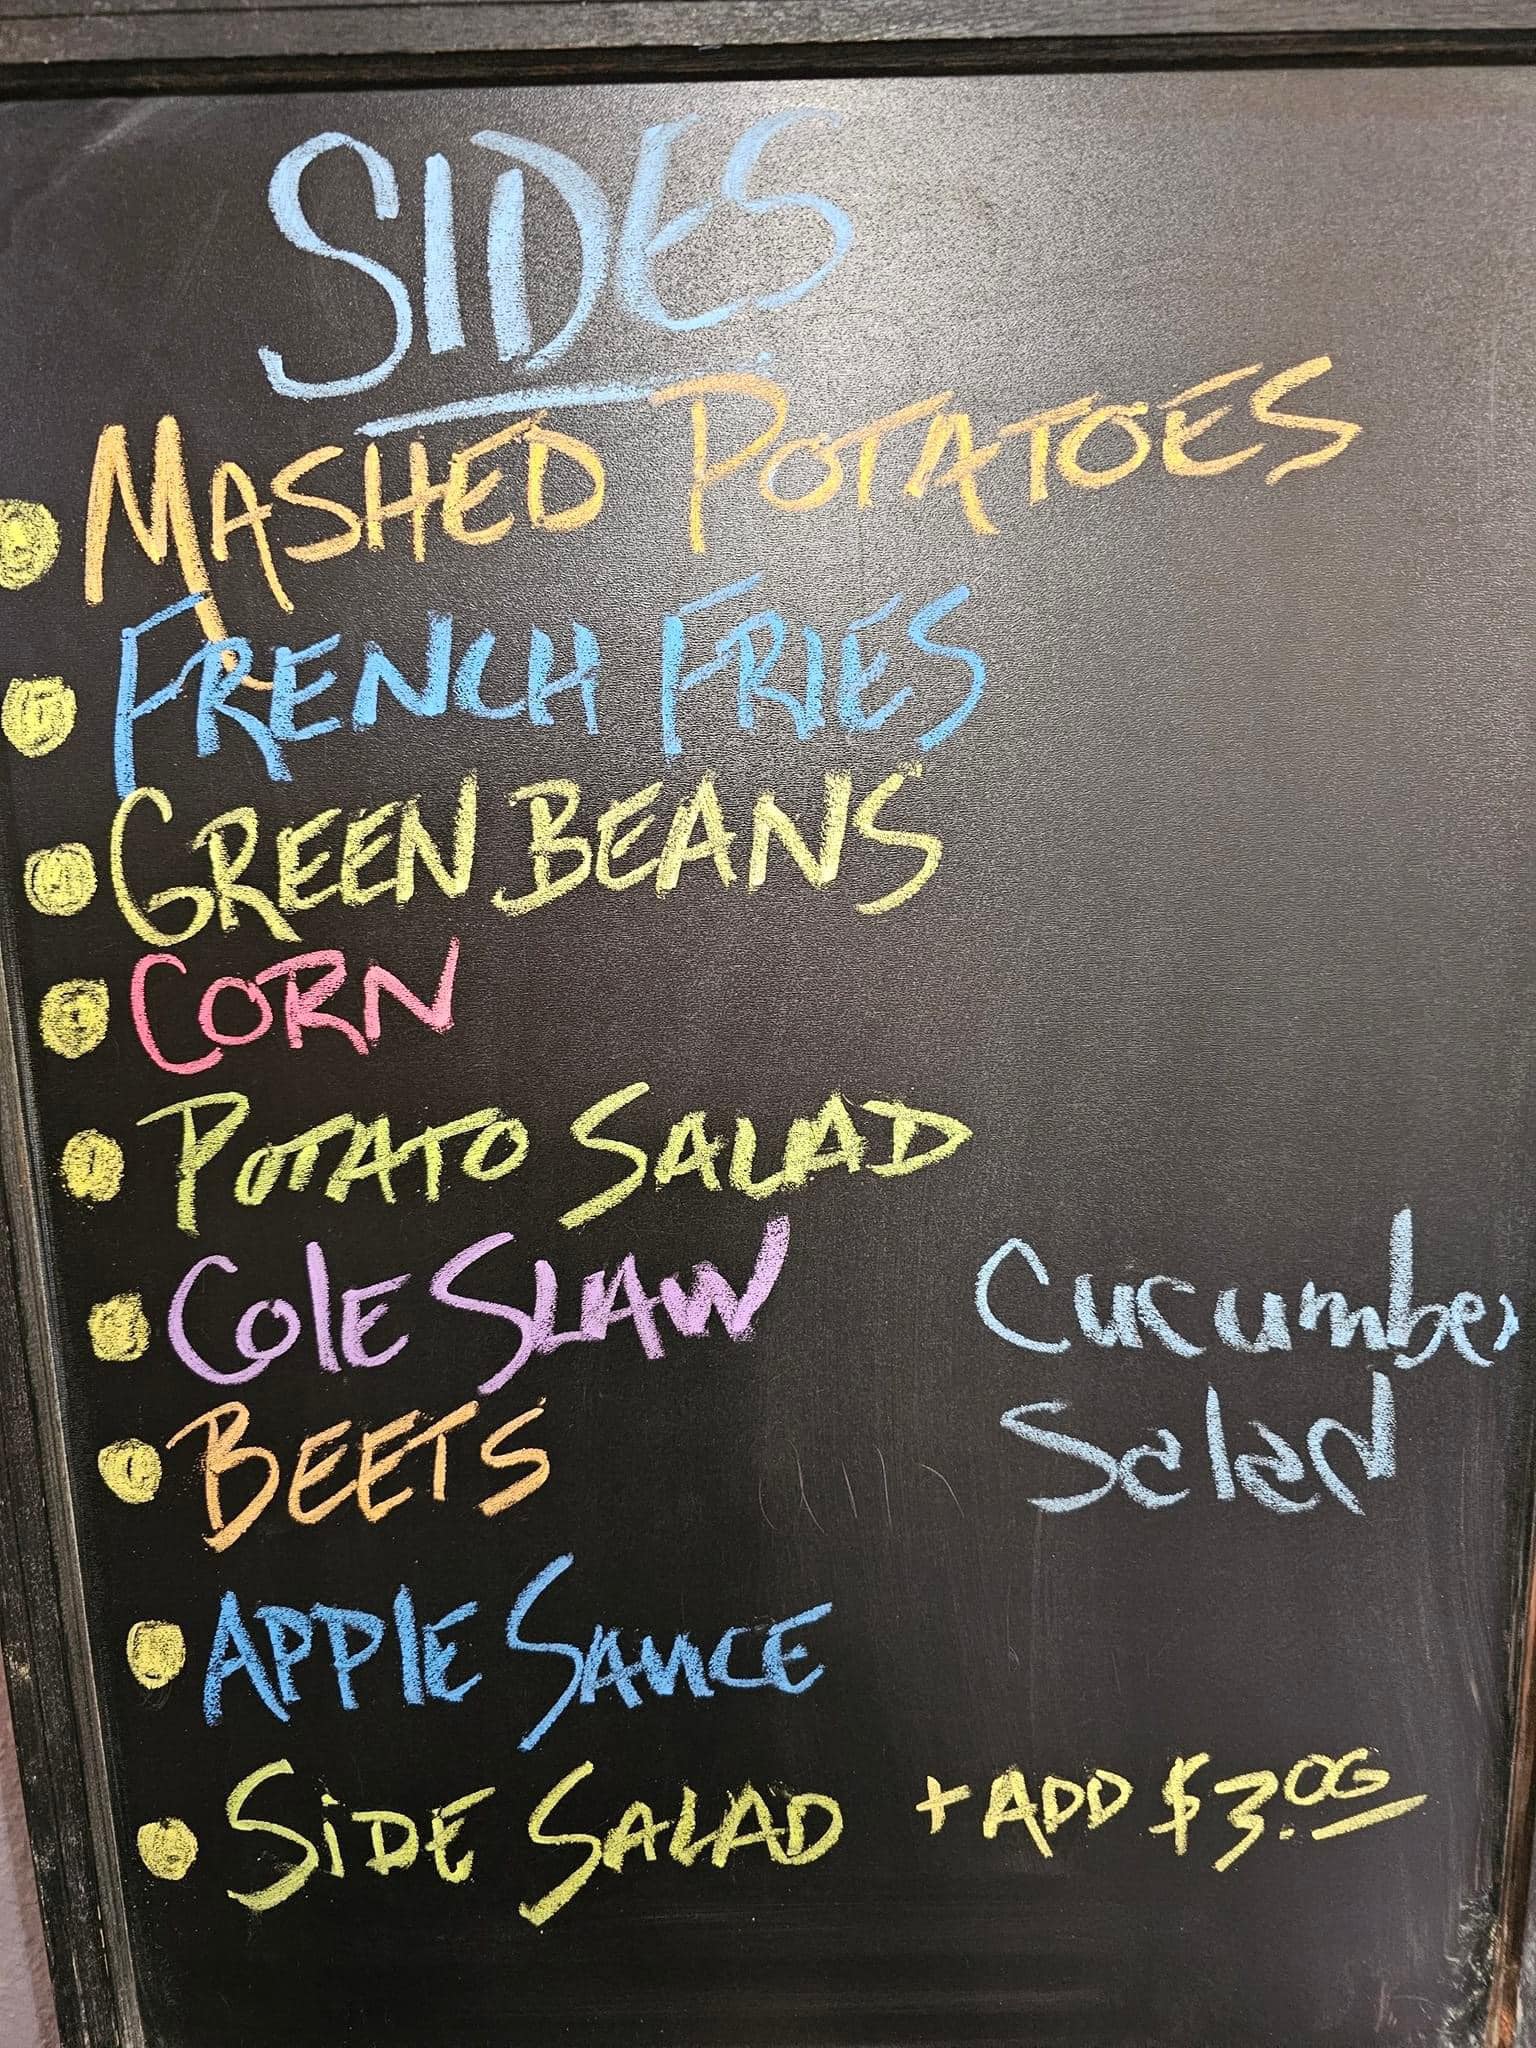 SIDES
MASHED POTATOES
FRENCH FRIES
GREEN BEANS
CORN
POTATO SALAD
COlE SLAW
Cucumber
Salad
BEETS
APPlE SAUCE
SiDE SALAD + ADD $3.00